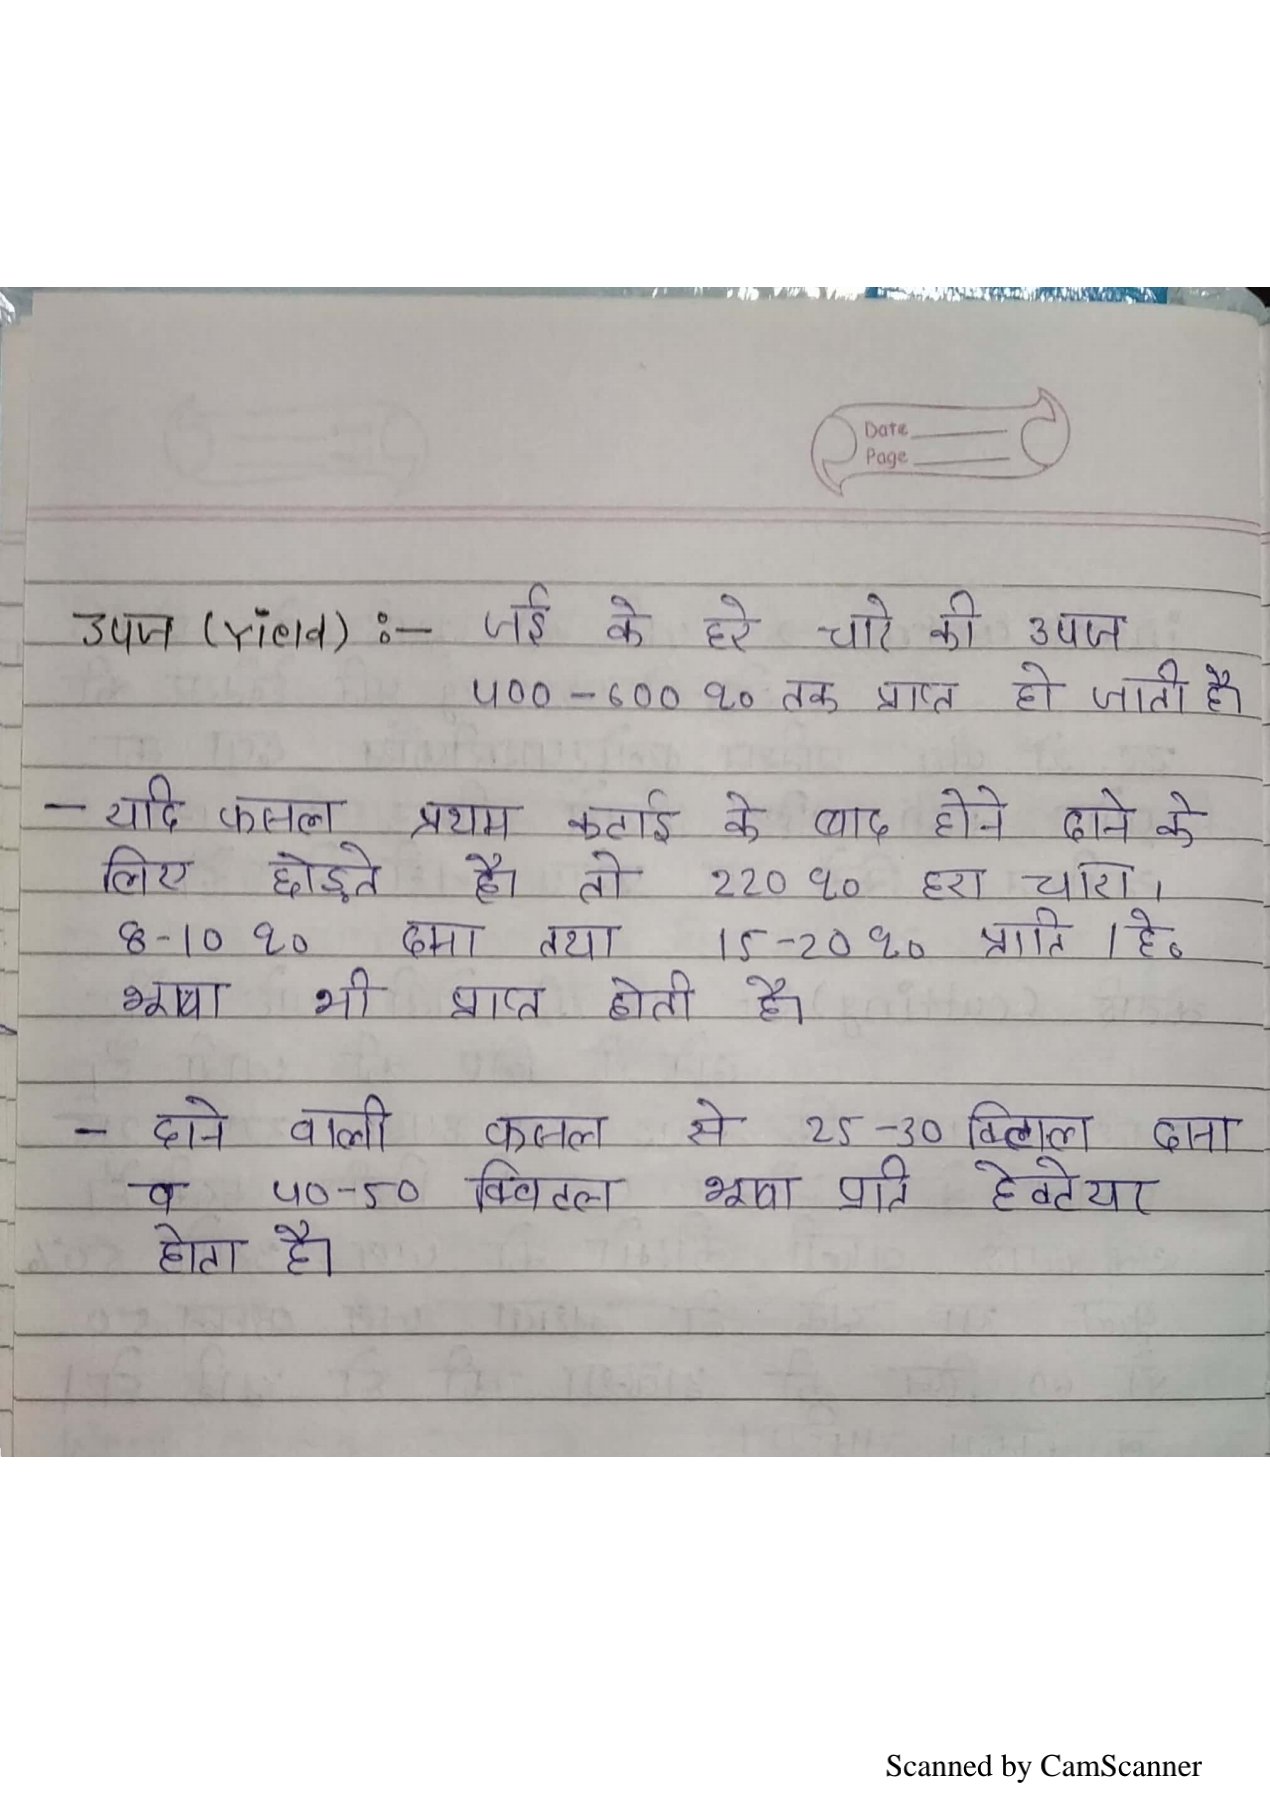 Date
Page
उपज (Yield) :— जई के हरे चारे की उपज
400-600 q० तक प्राप्त हो जाती है।
- यदि फसल प्रथम कटाई के बाद होने दाने के
लिए छोड़ते है। तो 220 q० हरा चारा।
8-10 q० दाना तथा 15-20 q० प्राति । हे०
भूषा भी प्राप्त होती है।
- दाने वाली फसल से 25-30 दाना
व 40-50 क्विटल भूषा प्रति हेक्टेयर
होता है।
Scanned by CamScanner